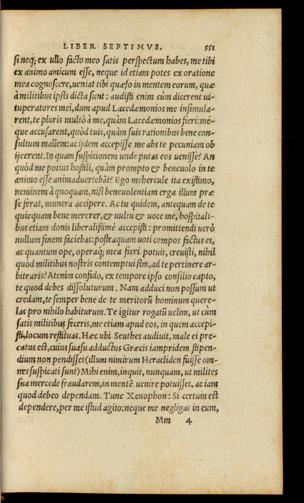 LIBER SEPTIMVS. 551
si neq; ex ullo facto meo satis perspectum habes, me tibi
ex animo amicum esse, neque id etiam potes ex oratione
mea cognoscere, ueniat tibi quæso in mentem eorum, quæ
à militibus ipsis dicta sunt: audisti enim cùm dicerent ui-
tuperatores mei, dum apud Lacedæmonios me insimula-
rent, te pluris multò à me, quàm Lacedæmonios fieri: mé-
que accusarent, quòd tuis, quàm suis rationibus bene con-
sultum mallem: ac ijdem accepisse me abs te pecuniam ob
ijcerent. In quam suspicionem unde putas eos uenisse? An
quòd me potius hostili, quàm prompto & beneuolo in te
animo esse animaduertebāt? Ego mehercule ita existimo,
neminem à quoquam, nisi beneuolentiam erga illum præ
se ferat, munera accipere. Ac tu quidem, antequam de te
quicquam bene mererer, & uultu & uoce me, hospitali-
bus etiam donis liberalißimè accepisti: promittendi uerò
nullum finem faciebas: posteaquam uoti compos factus es,
ac quantum ope, operaq; mea fieri potuit, creuisti, nihil
quòd militibus nostris contemptus sim, ad te pertinere ar-
bitraris? Atenim confido, ex tempore ipso consilio capto,
te quod debes dissoluturum. Nam adduci non possum ut
credam, te semper bene de te meritorū hominum quere-
las pro nihilo habiturum. Te igitur rogatū uelim, ut cùm
satis militibus feceris, me etiam apud eos, in quem accepi-
sti, locum restituas. Hæc ubi Seuthes audiuit, malè ei pre-
catus est, cuius suasu adductus Græcis iampridem stipen-
dium non pendisset (illum nimirum Heracliden fuisse om-
nes suspicati sunt) Mihi enim, inquit, nunquam, ut milites
sua mercede fraudarem, in mentē uenire potuisset, ac iam
quod debeo dependam. Tunc Xenophon: Si certum est
dependere, per me istud agito: neque me negligas in eum,
Mm 4